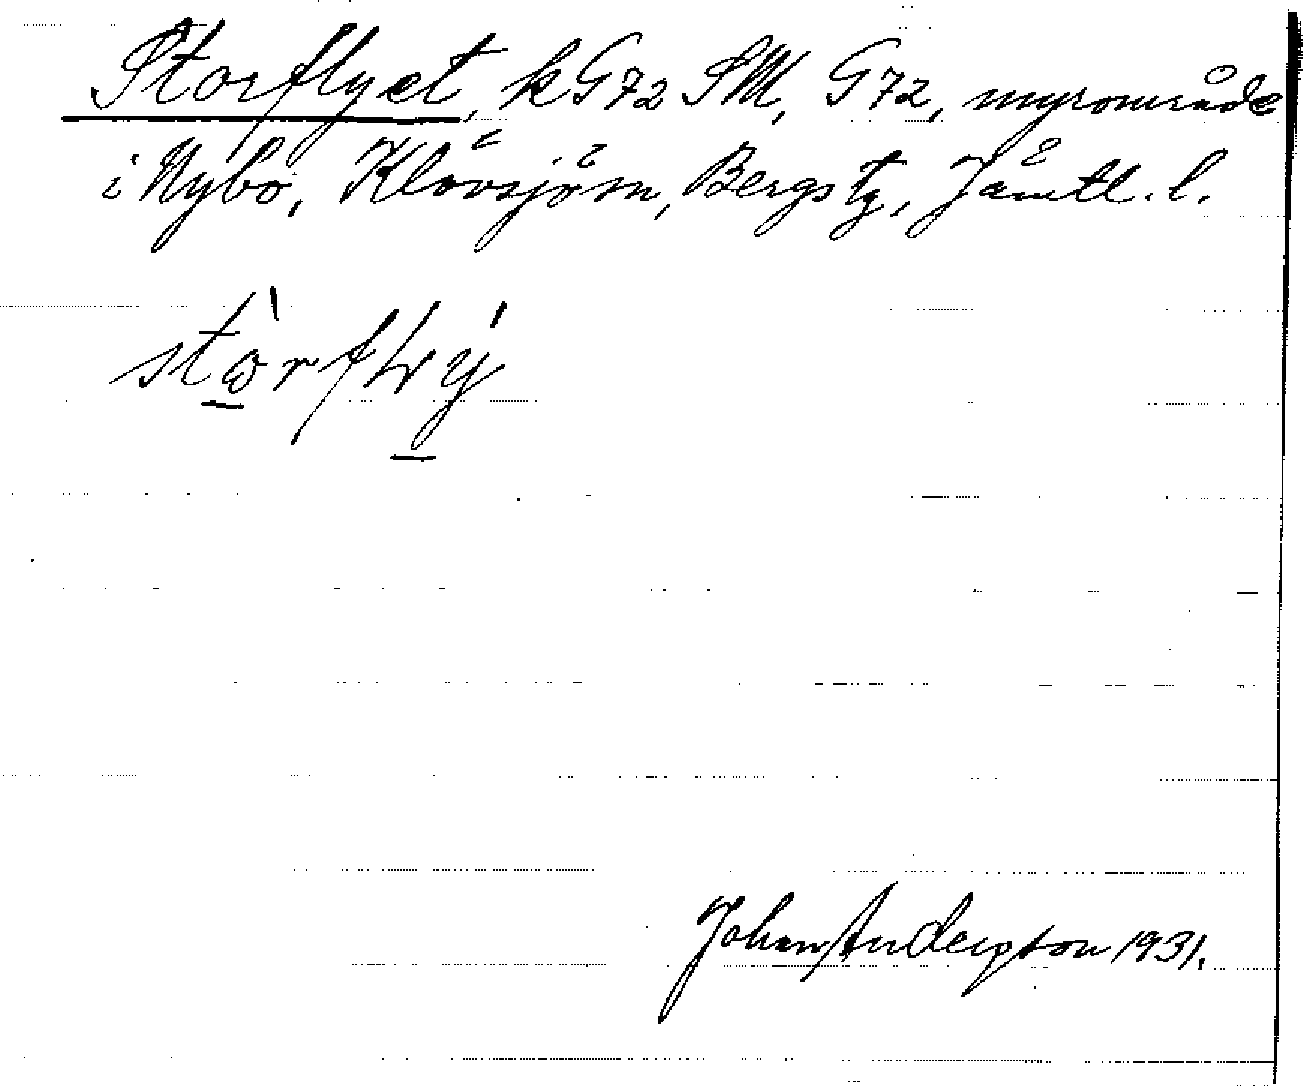 Storflyet, k G72 SM, G72, myrområde
i Nybo, Klövsjö sn, Bergs tg, Jämtl. l.
Johan Anderson 1931.